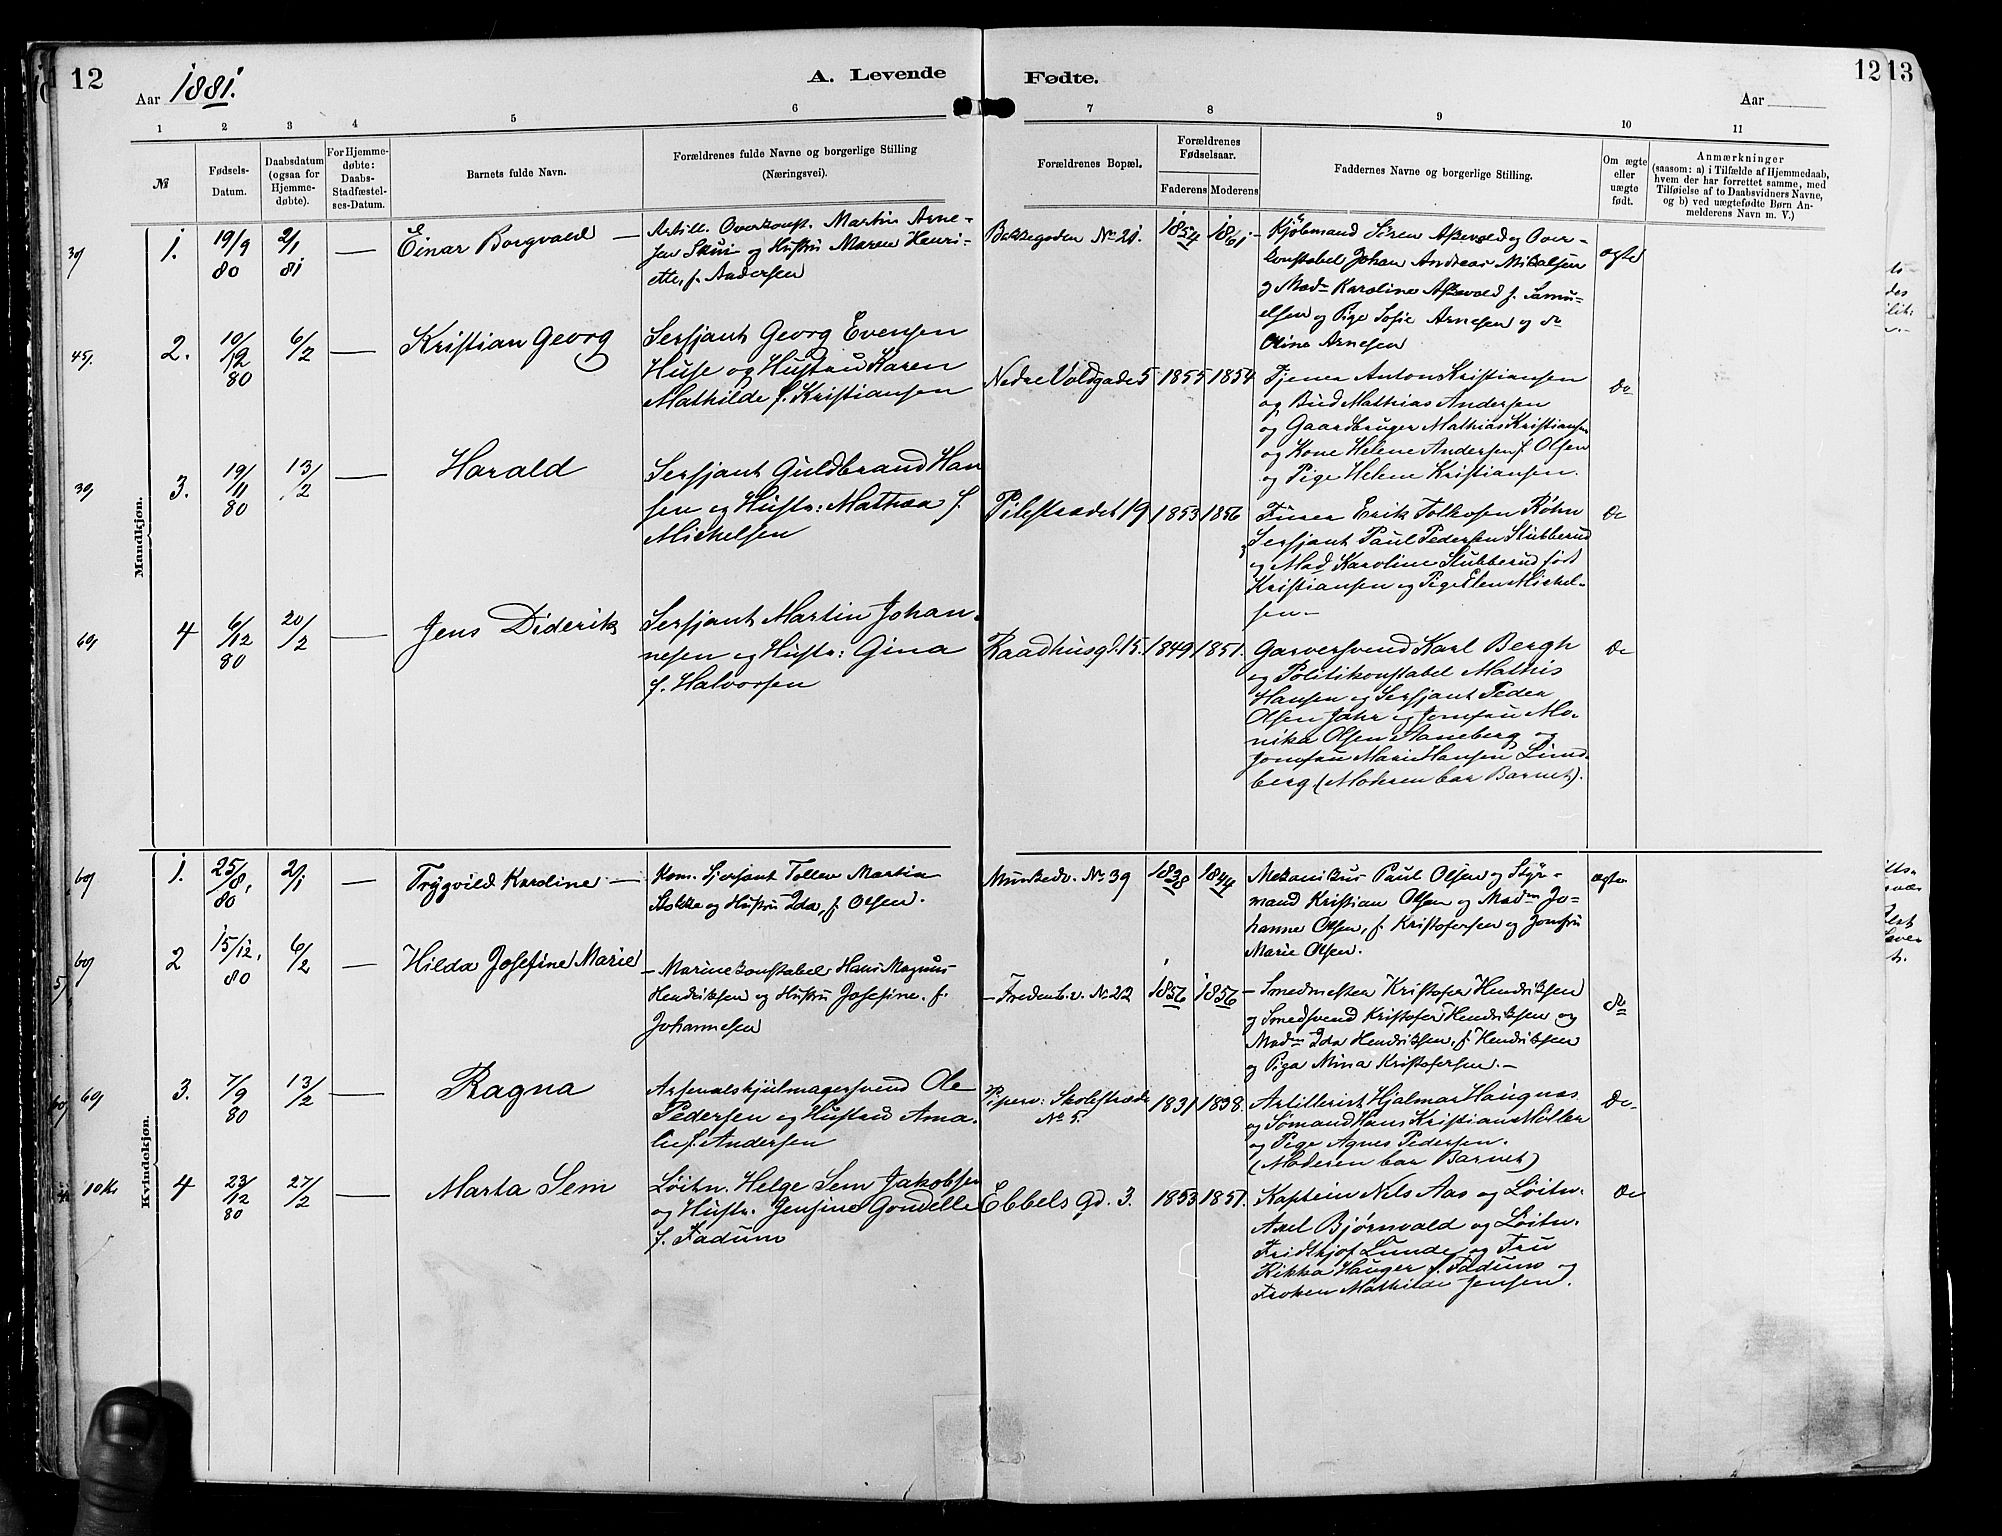 12
Aar 1881.
A. Levende
Fødte.
12
13
Aar
1
2
3
4
5
6
7
8
9
10
11
№
Fødsels-
Datum.
Daabsdatum
(ogsaa for
Hjemme-
døbte).
For Hjemme-
døbte:
Daabs-
Stadfæstel-
ses-Datum.
Barnets fulde Navn.
Forældrenes fulde Navne og borgerlige Stilling
(Næringsvei).
Forældrenes Bopæl.
Forældrenes
Fødselsaar.
Faderens
Moderens
Faddernes Navne og borgerlige Stilling.
Om ægte
eller
uægte
født.
Anmærkninger
(saasom: a) i Tilfælde af Hjemmedaab,
hvem der har forrettet samme, med
Tilføielse af to Daabsvidners Navne,
og b) ved uægtefødte Børn An-
melderens Navn m. V.)
Mandkjøn.
1.
19/9
80
2/1
81
—
Einar Borgvald —
Artill. Overkonst. Martin Arne-
sen Skui og Hustru Maren Henri-
ette, f. Andersen
Bakkegaden No 21.
1854
1861
Kjøbmand Sören Askevold og Over-
konstabel Johan Andreas Mikalsen
og Madm Karoline Askevold f. Samu-
elsen og Pige Sofie Arnesen og do
Oline Arnesen
ægte
2.
10/12
80
6/2
—
Kristian Georg
Sersjant Georg Evensen
Huse og Hustru Karen
Mathilde f. Kristiansen
Nedre Voldgade 5
1855
1854
Tjener Anton Kristiansen
og Bud Mathias Andersen
og Gaardbruger Mathias Kristiansen
og Kone Helene Andersen f. Olsen
og Pige Helene Kristiansen.
Do
3.
19/11
80
13/2
—
Harald
Sersjant Guldbrand Han
sen og Hustr: Mathea f.
Mickelsen
Pilestrædet 19
1853
1856
Furer Erik Tolleosen Røhn
og Sersjant Paul Pedersen Stubberud
og Mad Karoline Stubberud født
Kristiansen og Pige Elen Mickel-
sen —
Do
4
6/12
80
20/2
—
Jens Diderik
Sersjant Martin Johan-
nesen og Hustr: Gina
f. Halvorsen
Raadhusgd. 15.
1849
1851.
Garversvend Karl Bergh
og Politikonstabel Mathis
Hansen og Sersjant Peder
Olsen Jahr og Jomfru Mo-
nika Olsen Aaneberg og
Jomfru Marie Hansen Lund
berg (Moderen bar Barnet).
Do
Kvindekjøn.
1.
25/8.
80
2/1
—
Trygvild Karoline —
Kom. Sjersant Tollev Martin
Stokke og Hustru Ida, f. Olsen.
Munkedv. No 39
1838
1844
Mekanikus Paul Olsen og Styr-
mand Kristian Olsen og Madm Jo-
hanne Olsen, f. Kristofersen og Jomfru
Marie Olsen.
ægte
2
15/12.
80
6/2
—
Hilda Josefine Marie
— Marinekonstabel Hans Magnus
Hendriksen og Hustru Josefine f.
Johannesen
— Fredenb. v. No 22
1856
1856
— Smedmester Kristofer Hendriksen
og Smedsvend Kristofer Hendriksen og
Madm Ida Hendriksen, f. Hendriksen
og Pige Mina Kristofersen. —
do
3.
7/9
80
13/2
—
Ragna
Arsenalshjulmagersvend Ole
Pedersen og Hustru Ama-
lie f. Andersen
Piperv: Skolestræde
No 5.
1831
1838.
Artillerist Hjalmar Haugnæs
og Sømand Hans Kristian Møller
og Pige Agnes Pedersen.
(Moderen bar Barnet)
Do
4
23/12
80
27/2
—
Marta Sem
Løitn. Helge Sem Jakobsen
og Hustr. Jensine Gondelle
f. Fadum
Ebbels Gd. 3.
1853
1851.
Kaptein Nils Aas og Løitn.
Axel Bjørnvald og Løitn.
Fridthjof Lunde og Fru
Rikka Hauger f. Fadum og
Frøken Mathilde Jensen.
Do
10 Kr